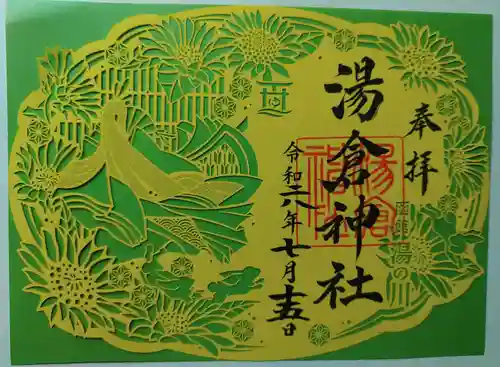 奉拝
函館湯の川
湯倉神社
湯倉
神社
令和六年七月十五日